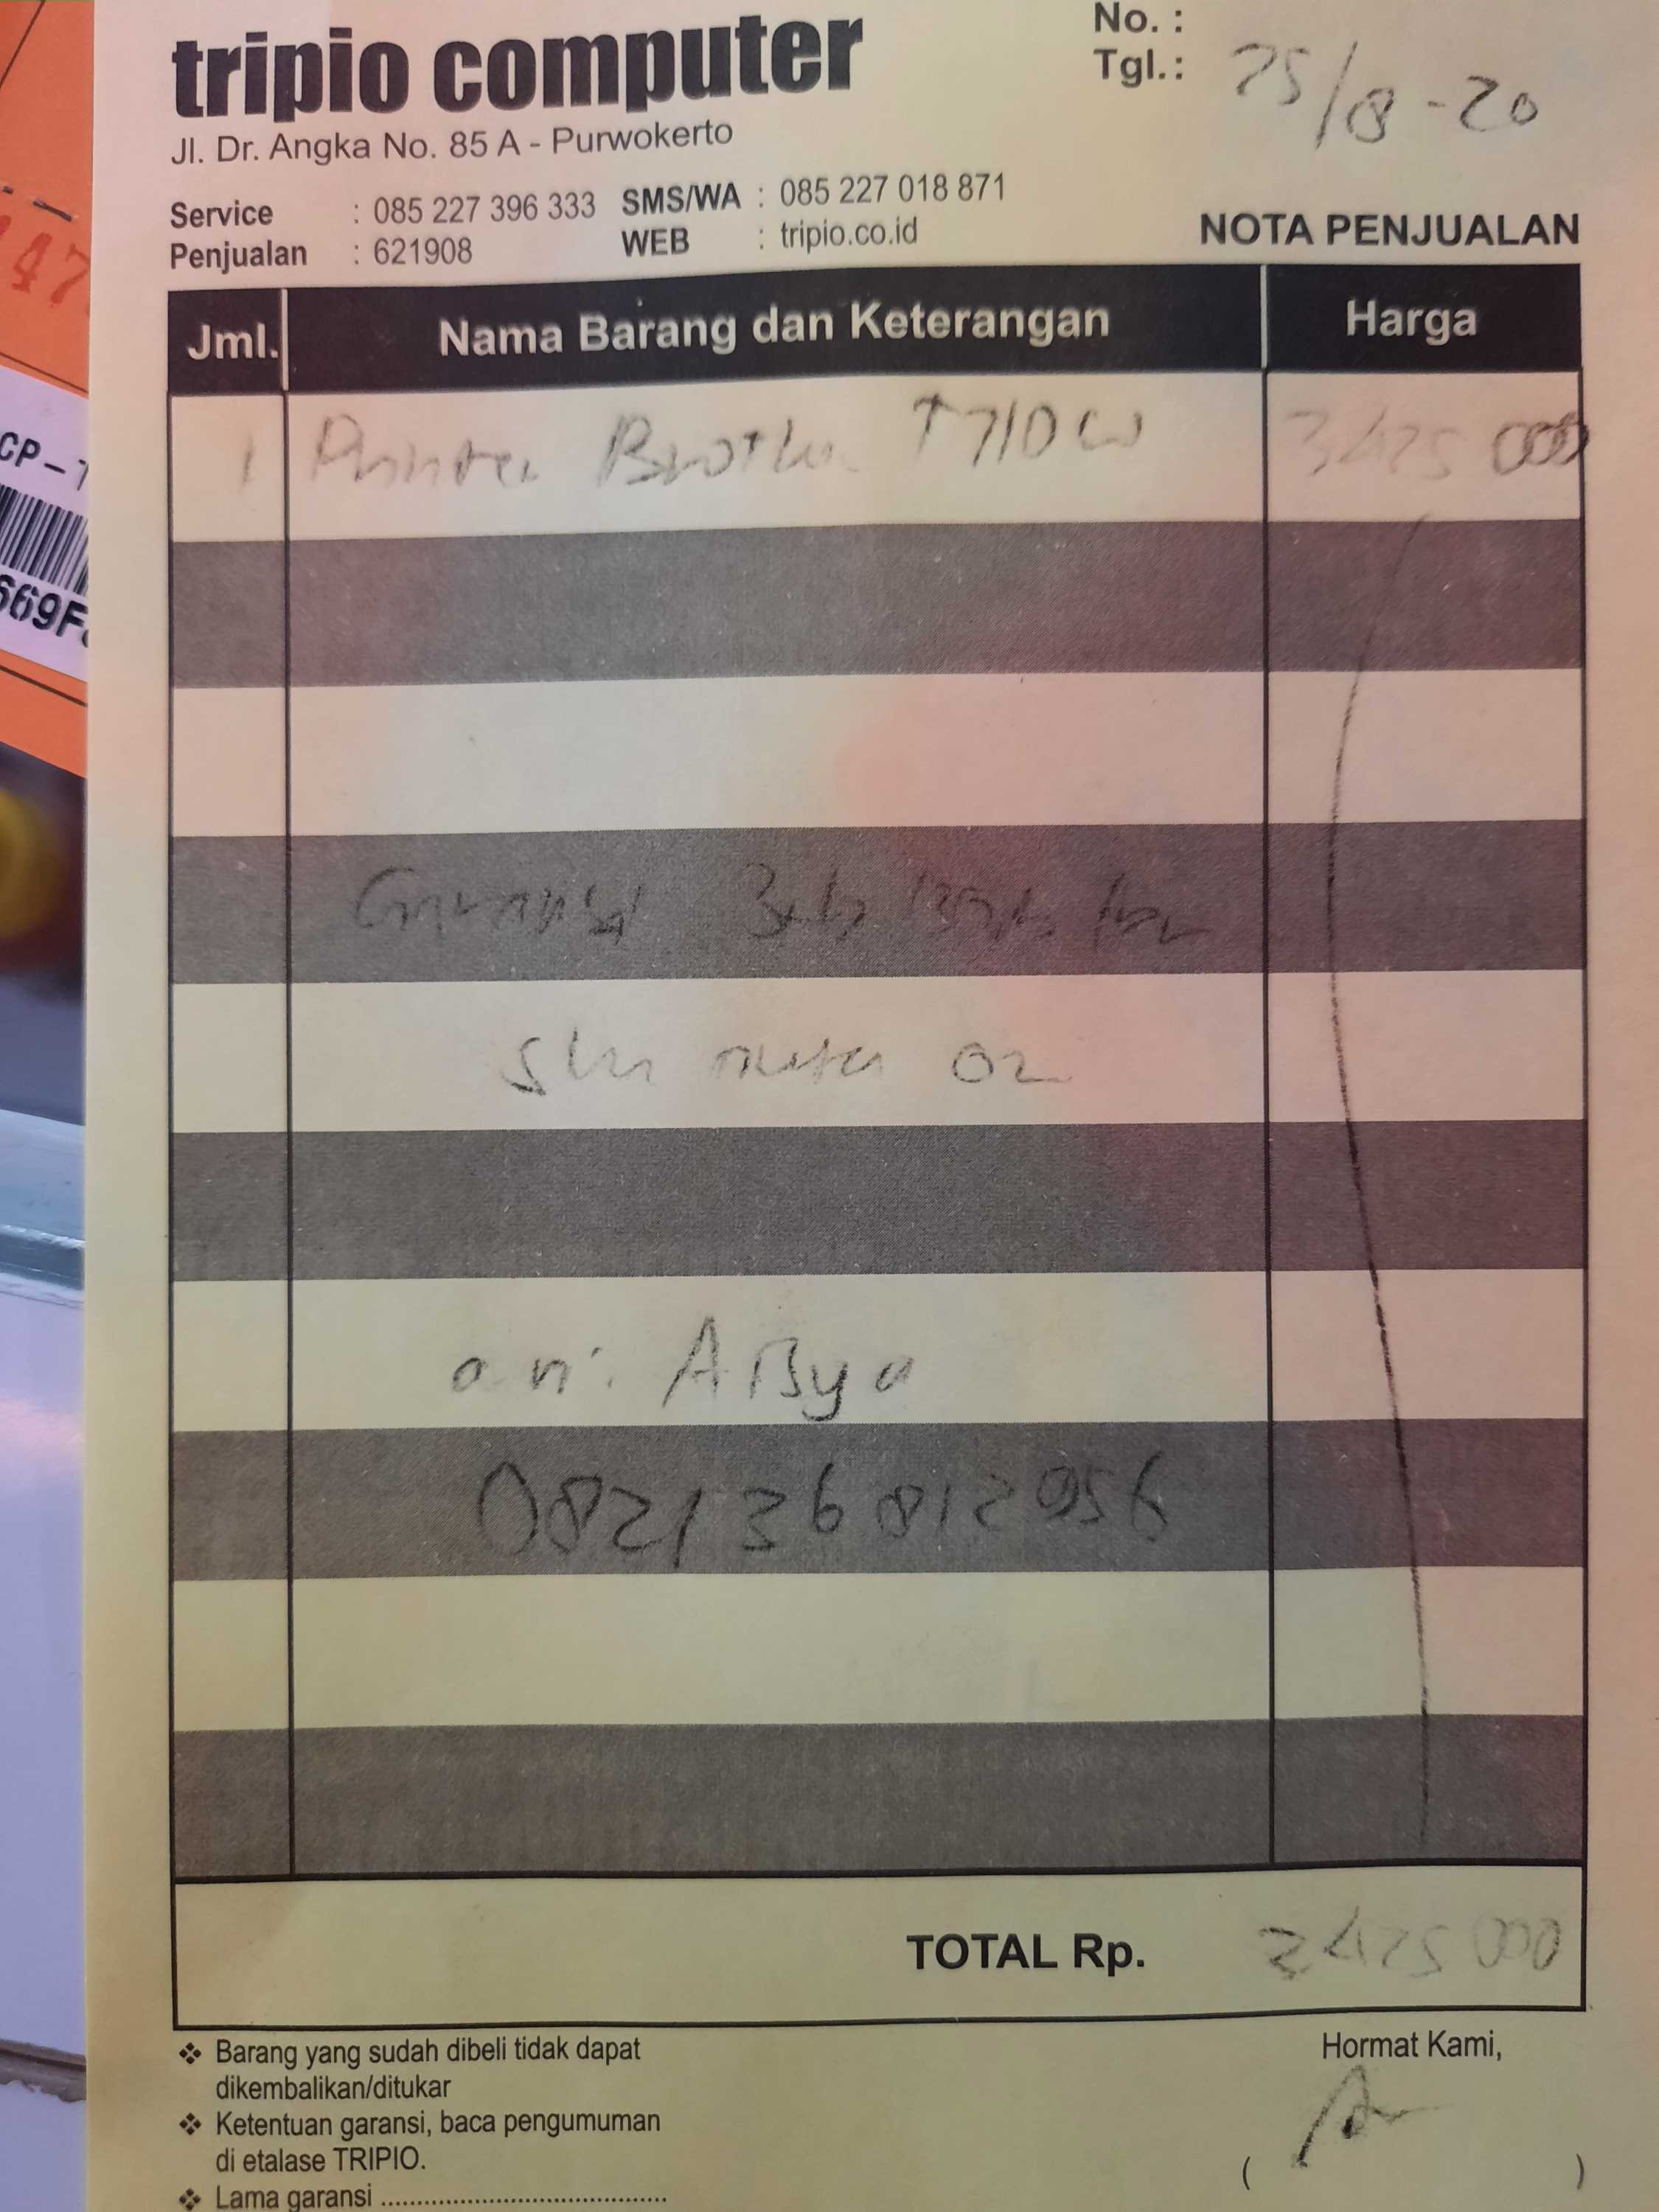 tripio computer
No. :
Tgl.: 25/8-20
Jl. Dr. Angka No. 85 A - Purwokerto
Service : 085 227 396 333 SMS/WA : 085 227 018 871
Penjualan : 621908 WEB : tripio.co.id
NOTA PENJUALAN
Jml. Nama Barang dan Keterangan Harga
1 Printer Brother T710W 3425 000
Garansi
02
an: Arsya
082136812956
TOTAL Rp. 3425 000
Barang yang sudah dibeli tidak dapat
dikembalikan/ditukar
Ketentuan garansi, baca pengumuman
di etalase TRIPIO.
Lama garansi ..........................................
Hormat Kami,
( )
CP-
669F
47